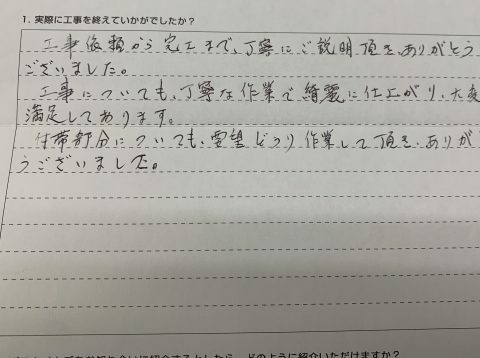 1. 実際に工事を終えていかがでしたか？
工事依頼から完工まで、丁寧にご説明頂き、ありがとう
ございました。
工事についても、丁寧な作業で綺麗に仕上がり、大変
満足しております。
付帯部分についても、要望どうり作業して頂き、ありが
うございました。
どのように紹介いただけますか？